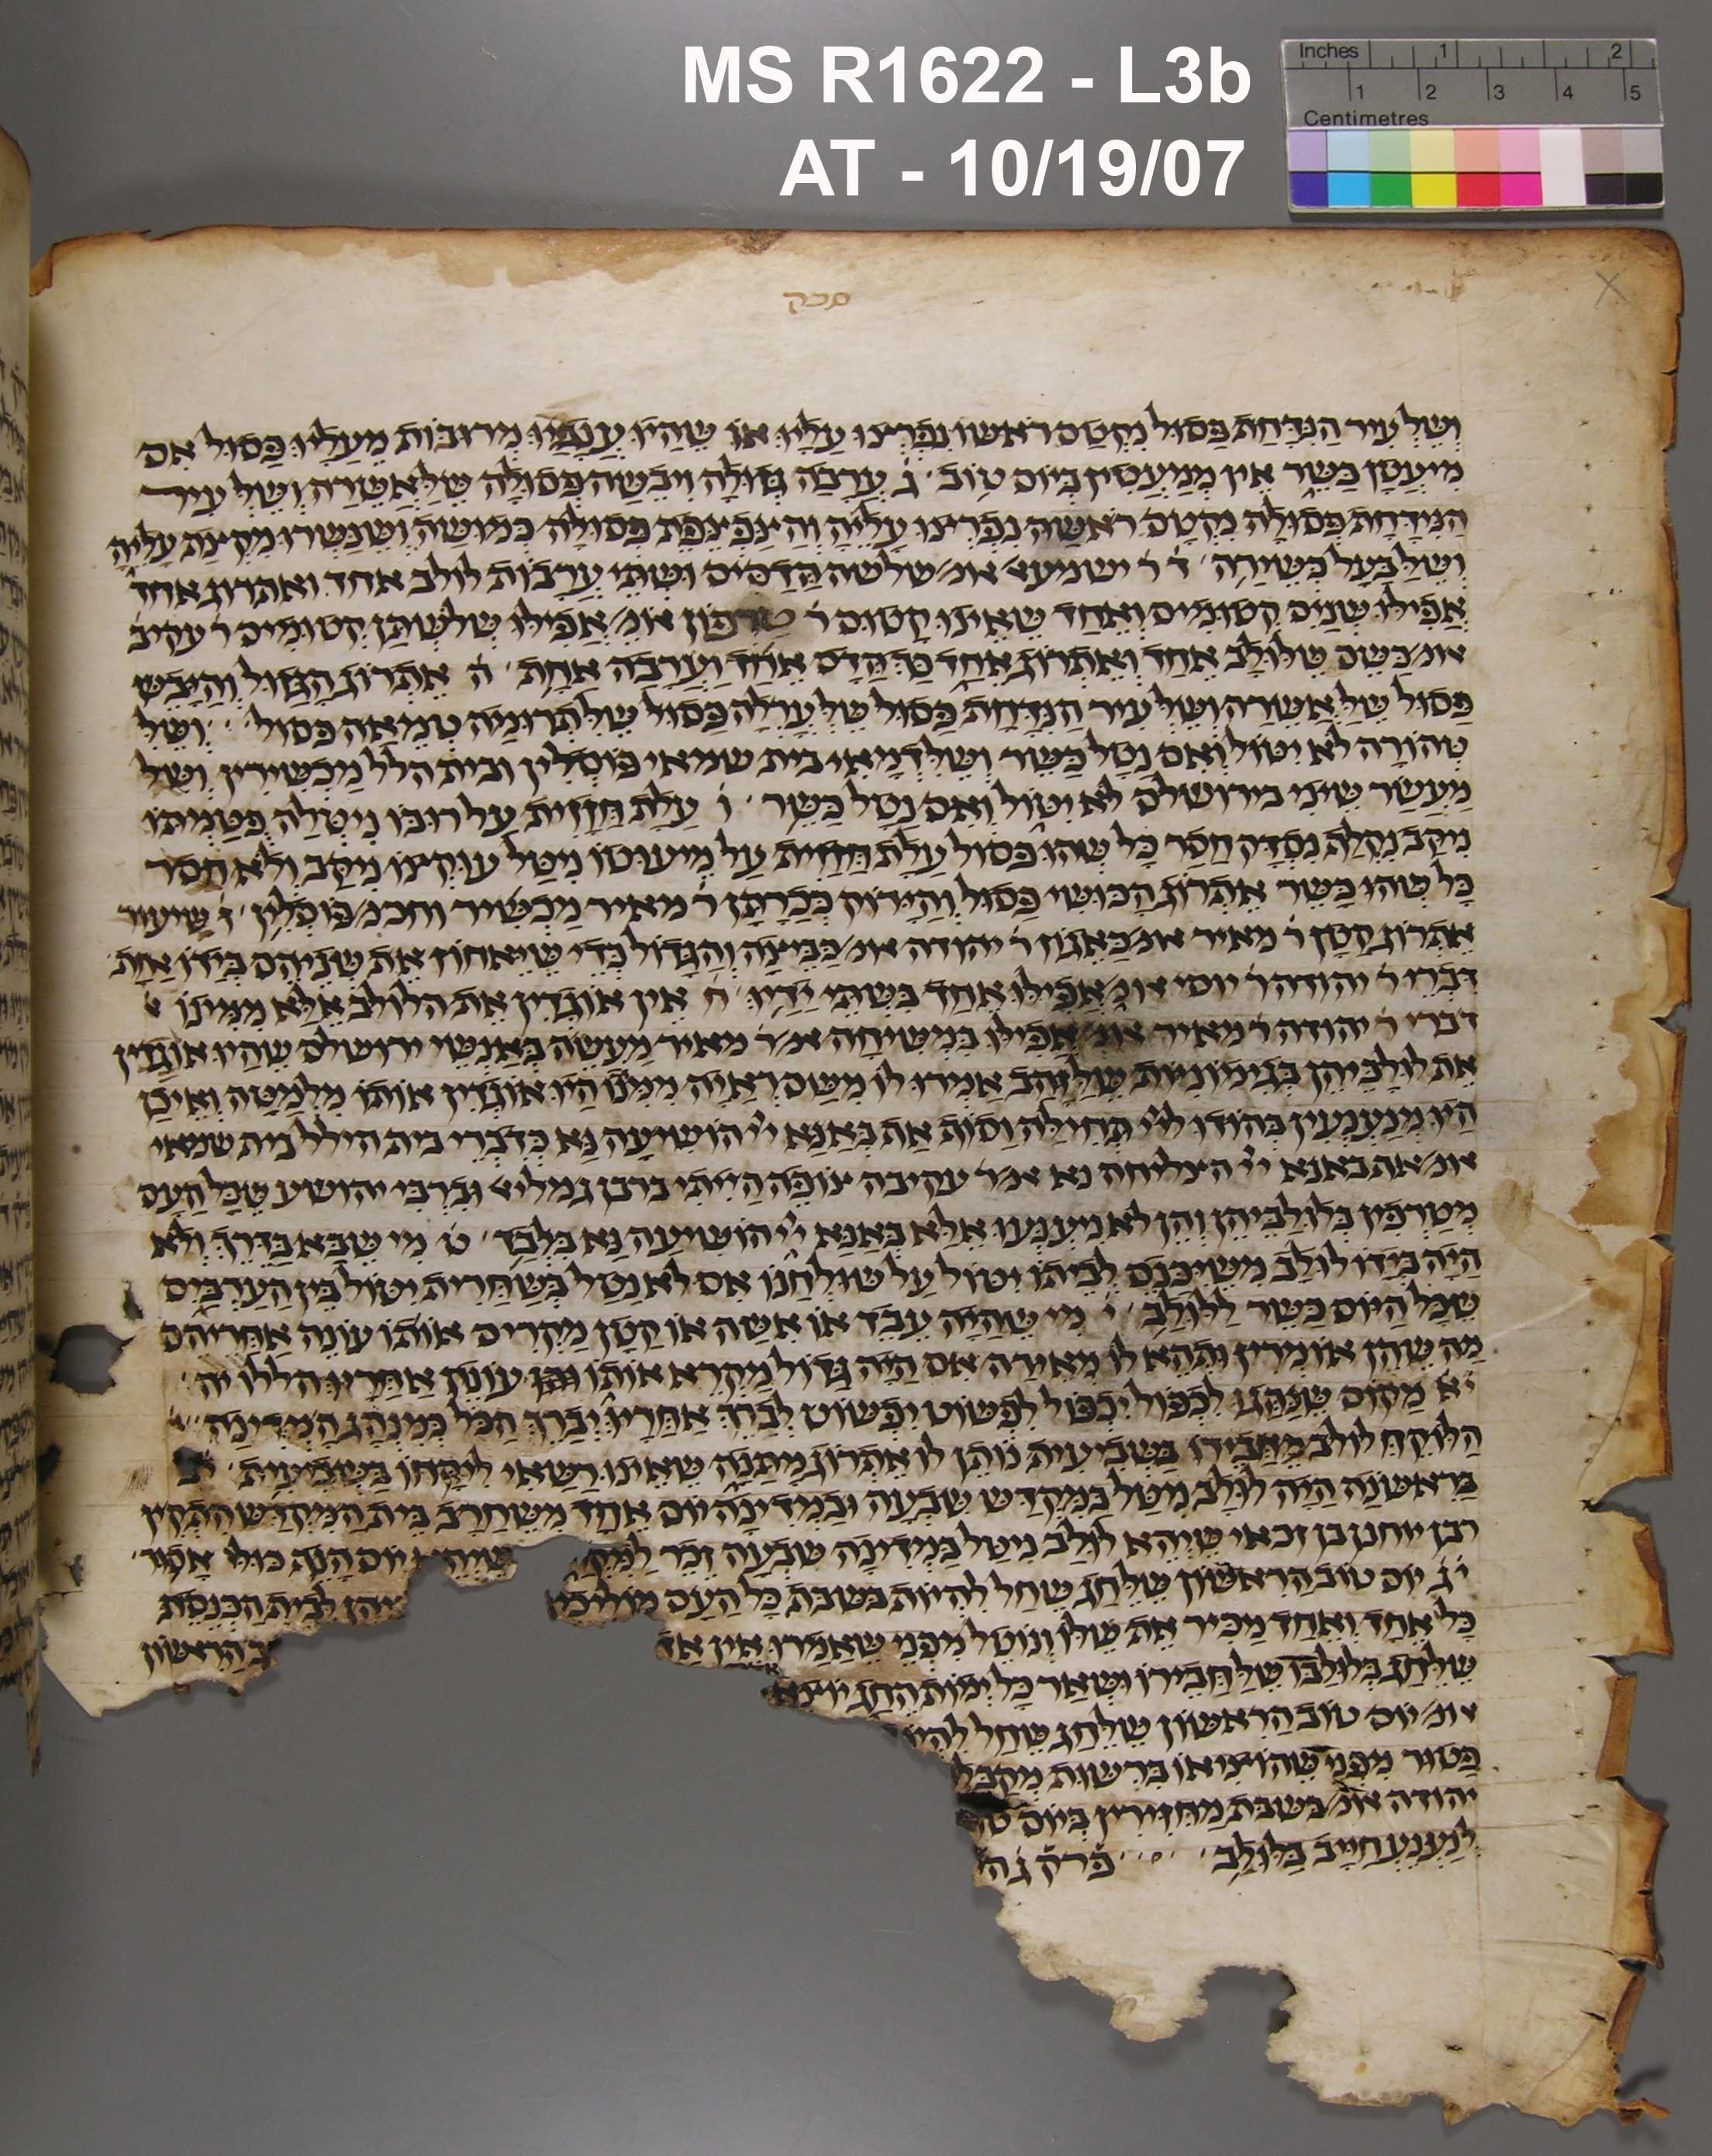 MS R1622 - L3b
AT - 10/19/07
Inches 1 2
1 2 3 4 5
Centimetres
ושל עיר הנדחת פסול נקטם ראשו נפרצו עליו או שהיו ענביו מרובות מעליו פסול אם
מיעטן כשר אין ממעטין ביום טוב ג ערבה גזולה ויבשה פסולה של אשרה ושל עיר
הנידחת פסולה נקטם ראשה נפרצו עליה והצפצפת פסולה כמושה ושנשרו מקצת עליה
ושל בעל כשירה ד ר ישמעאל אומ׳ שלשה הדסים ושתי ערבות לולב אחד ואתרוג אחד
אפילו שנים קטומים ואחד שאינו קטום ר טרפון אומ׳ אפילו שלשתן קטומים ר עקיב
אומ׳ כשם שלולב אחד ואתרוג אחד כך הדס אחד וערבה אחת ה אתרוג הגזול והיבש
פסול של אשרה ושל עיר הנדחת פסול של ערלה פסול של תרומה טמאה פסול ושל
טהורה לא יטול ואם נטל כשר ושל דמאי בית שמאי פוסלין ובית הלל מכשירין ושל
מעשר שיני בירושלם לא יטול ואם נטל כשר ו עלת חזזית על רובו ניטלה פטמתו
נקב נקלף נסדק חסר כל שהו פסול עלת חזזית על מיעוטו ניטל עוקצו נקב ולא חסר
כל שהו כשר אתרוג הכושי פסול והירוק ככרתן ר מאיר מכשיר וחכמ׳ פוסלין ז שיעור
אתרוג קטן ר מאיר אומ׳ כאגוז ר יהודה אומ׳ כביצה והגדול כדי שיאחוז את שניהם בידו אחת
דברי ר יהודה ר יוסי אומ׳ אפילו אחד בשתי ידיו ח אין אוגדין את הלולב אלא ממינו
דברי ר יהודה ר מאיר אומ׳ אפילו במשיחה אמ׳ ר מאיר מעשה באנשי ירושלם שהיו אוגדין
את לולביהן בגימוניות של זהב אמרו לו משם ראיה ממינו היו אוגדין אותו מלמטה ואיכן
היו מנענעין בהודו לייי תחילה וסוף את באנא ייי הושיעה נא כדברי בית הילל בית שמאי
אומ׳ אף באנא ייי הצליחה נא אמ׳ ר עקיבה צופה הייתי ברבן גמליאל וברבי יהושע שכל העם
מטרפין בלולביהן והן לא נענעו אלא באנא ייי הושיעה נא בלבד ט מי שבא בדרך ולא
היה בידו לולב משיכנס לביתו יטול על שולחנו אם לא נטל בשחרית יטול בין הערבים
שכל היום כשר ללולב י מי שהיה עבד או אשה או קטן מקרים אותו עונה אחריהם
מה שהן אומרין ותהא לו מאירה אם היה גדול מקרא אותו עונה אחריו הללו יה
יא מקום שנהגו לכפול יכפול לפשוט יפשוט לברך אחריו יברך הכל כמנהג המדינה
הלוקח לולב מחבירו בשביעית נותן לו אתרוג מתנה שאינו רשאי ליקחו בשביעית יב
בראשנה היה לולב ניטל במקדש שבעה ובמדינה יום אחד משחרב בית המקדש התקין
רבן יוחנן בן זכאי שיהא לולב ניטל במדינה שבעה זכר למק שיהא יום הנף כולו אסור
יג יום טוב הראשון של חג שחל להיות בשבת כל העם מוליכי יהן לבית הכנסת
כל אחד ואחד מכיר את שלו ונוטל מפני שאמרו אין אד ב הראשון
של חג בלולבו של חבירו ושאר כל ימות החג יוצא
אומ׳ יום טוב הראשון של חג שחל להיו
פטור מפני שהוציאו ברשות מקבל
יהודה אומ׳ בשבת מחזירין ביום טו
לנענע חייב בלולב פרק ג ה